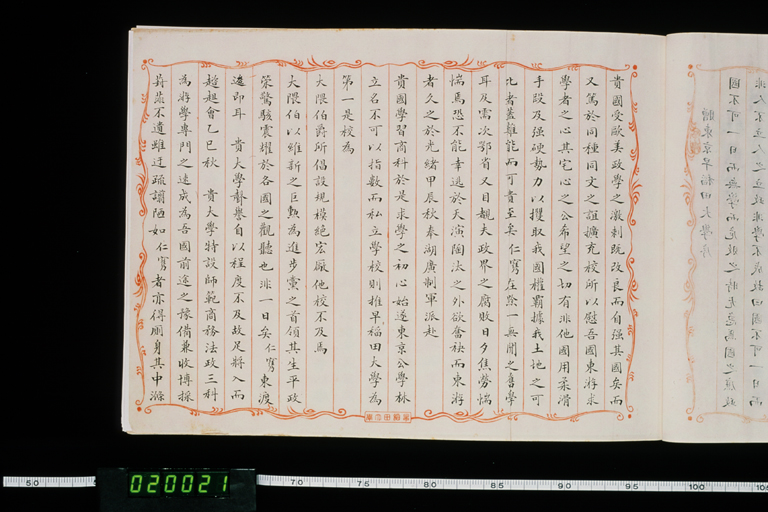 貴國受歐美政學之激刺既改良而自強其國矣而
又篤於同種同文之誼擴充校所以慰吾國東游求
學者之心其宅心之公希望之切有非他國用柔滑
手段及强硬勢力以攫取我國權霸據我土地之可
比者蓋難能而可貴至矣仁寯在然一無聞之舊學
耳及需次鄂省又目覩夫政界之腐敗日夕焦勞惴
惴焉恐不能幸逃於天演陶汰之外欲奮袂而東游
者久之於光緒甲辰秋奉湖廣制軍派赴
貴國學習商科於是求學之初心始遂東京公學林
立名不可以指數而私立學校則推早稻田大學為
第一是校為
大隈伯爵所倡設規模絶宏廠他校不及焉
大隈伯以維新之巨勲為進步黨之首領其生平政
榮驚駭震耀於各國之觀聽也非一日矣仁寯東渡
遂即耳 貴大學聲譽自以程度不及故足將入而
趑趄會乙巳秋 貴大學特設師範商務法政三科
為游學專門之速成為吾國前途之豫備兼收博採
葑菲不遺雖迂疏謭陋如仁寯者亦得厠身其中滌
020021
50
70
75
80
85
90
95
100
105